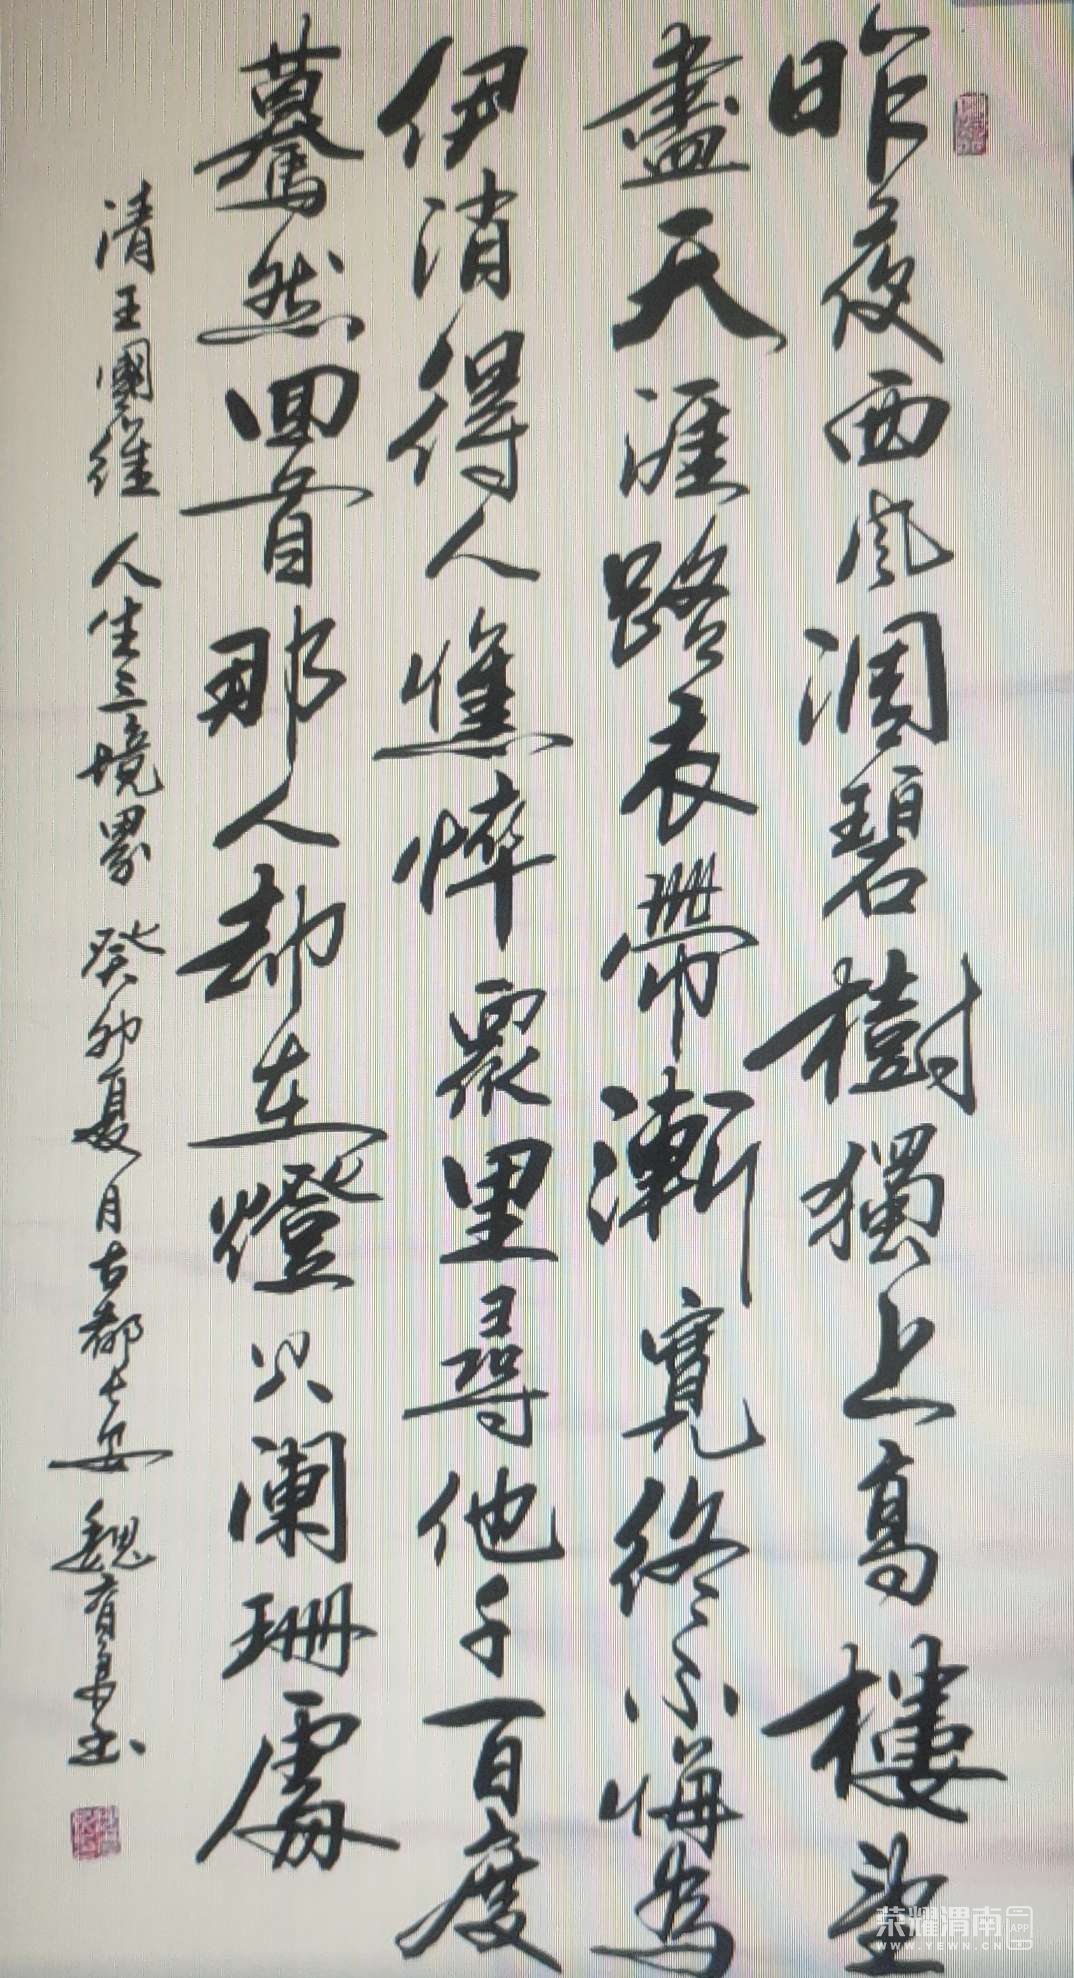 昨夜西风凋碧樹獨上高樓望
盡天涯路衣帶漸寬终不悔為
伊消得人憔悴眾里尋他千百度
驀然回首那人却在燈火闌珊處
清王國維人生三境界癸卯夏月古都长安魏育民书
荣耀渭南APP
WWW.YEWN.CN